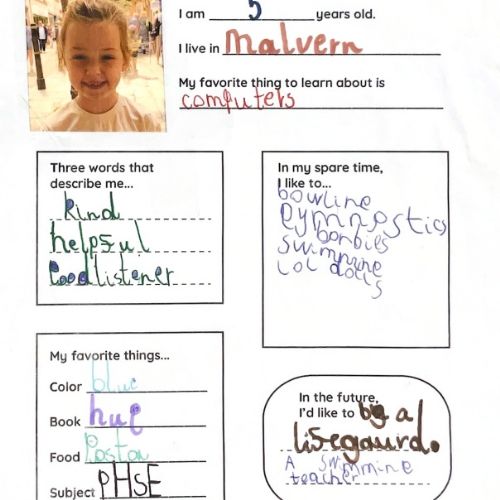 I am 5 years old.
I live in malvern
My favorite thing to learn about is
computers
Three words that
describe me...
kind
helpsul
Good listener
In my spare time,
I like to...
bowline
gymnostics
barbies
swimmine
lol dolls
My favorite things...
Color blue
Book hug
Food Poston
Subject PHSE
In the future,
I'd like to be a
lisegaurd.
A swimmine
teacher